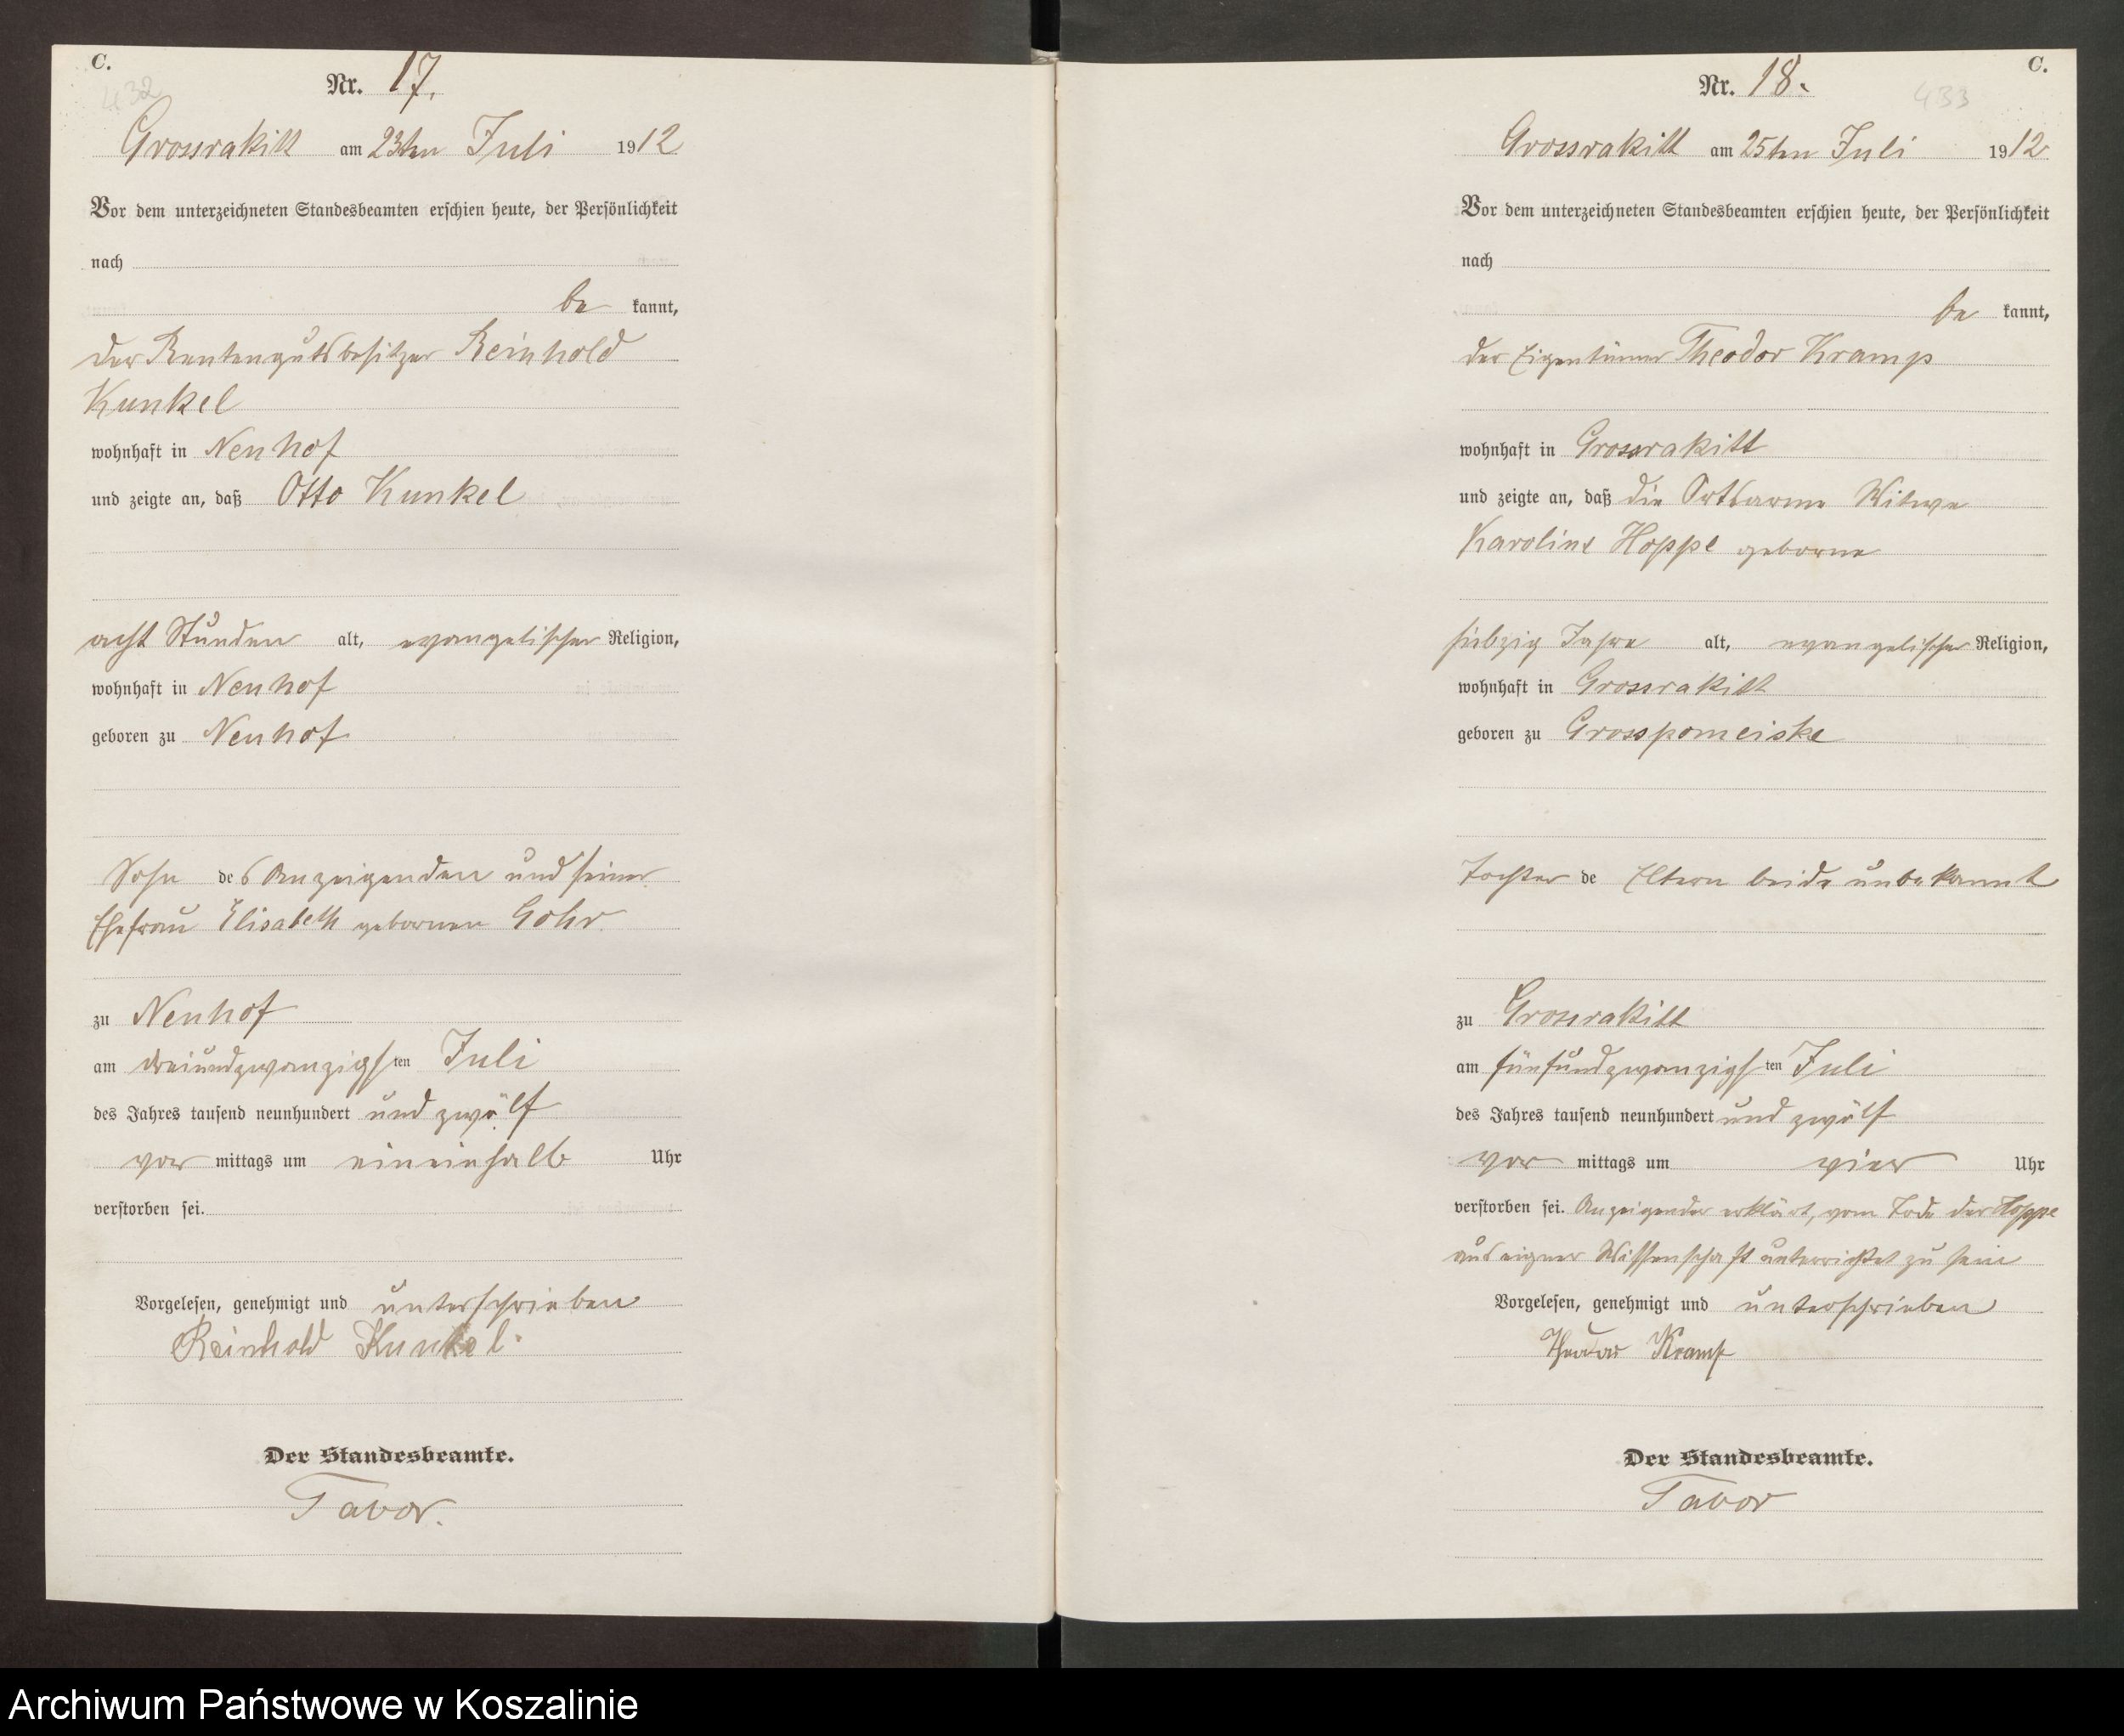 C.
432
Nr. 17.
Grossrakitt am 23ten Juli 1912
Vor dem unterzeichneten Standesbeamten erschien heute, der Persönlichkeit
nach
be kannt,
der Rentengutsbesitzer Reinhold
Kunkel
wohnhaft in Neuhof
und zeigte an, daß Otto Kunkel
acht Stunden alt, evangelischer Religion,
wohnhaft in Neuhof
geboren zu Neuhof
Sohn des Anzeigenden und seiner
Ehefrau Elisabeth gebornen Gohr.
zu Neuhof
am dreiundzwanzigsten Juli
des Jahres tausend neunhundert und zwölf
vor mittags um eineinhalb Uhr
verstorben sei.
Vorgelesen, genehmigt und unterschrieben
Reinhold Kunkel.
Der Standesbeamte.
Tavor.
C.
433
Nr. 18.
Grossrakitt am 25ten Juli 1912
Vor dem unterzeichneten Standesbeamten erschien heute, der Persönlichkeit
nach
be kannt,
der Eigentümer Theodor Kramp
wohnhaft in Grossrakitt
und zeigte an, daß die Ortsarme Witwe
Karoline Hoppe geborne
siebzig Jahre alt, evangelischer Religion,
wohnhaft in Grossrakitt
geboren zu Grosspomeiske
Tochter de Eltern beide unbekannt
zu Grossrakitt
am fünfundzwanzigsten Juli
des Jahres tausend neunhundert und zwölf
vor mittags um vier Uhr
verstorben sei. Anzeigender erklärt, vom Tode der Hoppe
aus eigner Wissenschaft unterrichtet zu sein
Vorgelesen, genehmigt und unterschrieben
Theodor Kramp
Der Standesbeamte.
Tavor
Archiwum Państwowe w Koszalinie